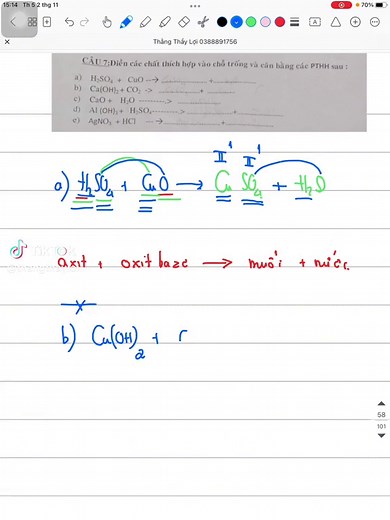 15:14 Th 5 2 thg 11
70%
Thắng Thầy Lợi 0388891756
CÂU 7: Điền các chất thích hợp vào chỗ trống và cân bằng các PTHH sau :
a) H₂SO₄ + CuO → .................. + ..................
b) Ca(OH)₂ + CO₂ -> .................. + ..................
c) CaO + H₂O --------> ..................
d) Al (OH)₃ + H₂SO₄--------> .................. + ..................
e) AgNO₃ + HCl --------> .................. + ..................
II II
a) H₂SO₄ + CuO → Cu SO₄ + H₂O
axit + oxit bazơ → muối + nước.
b) Cu(OH)₂ +
58
101